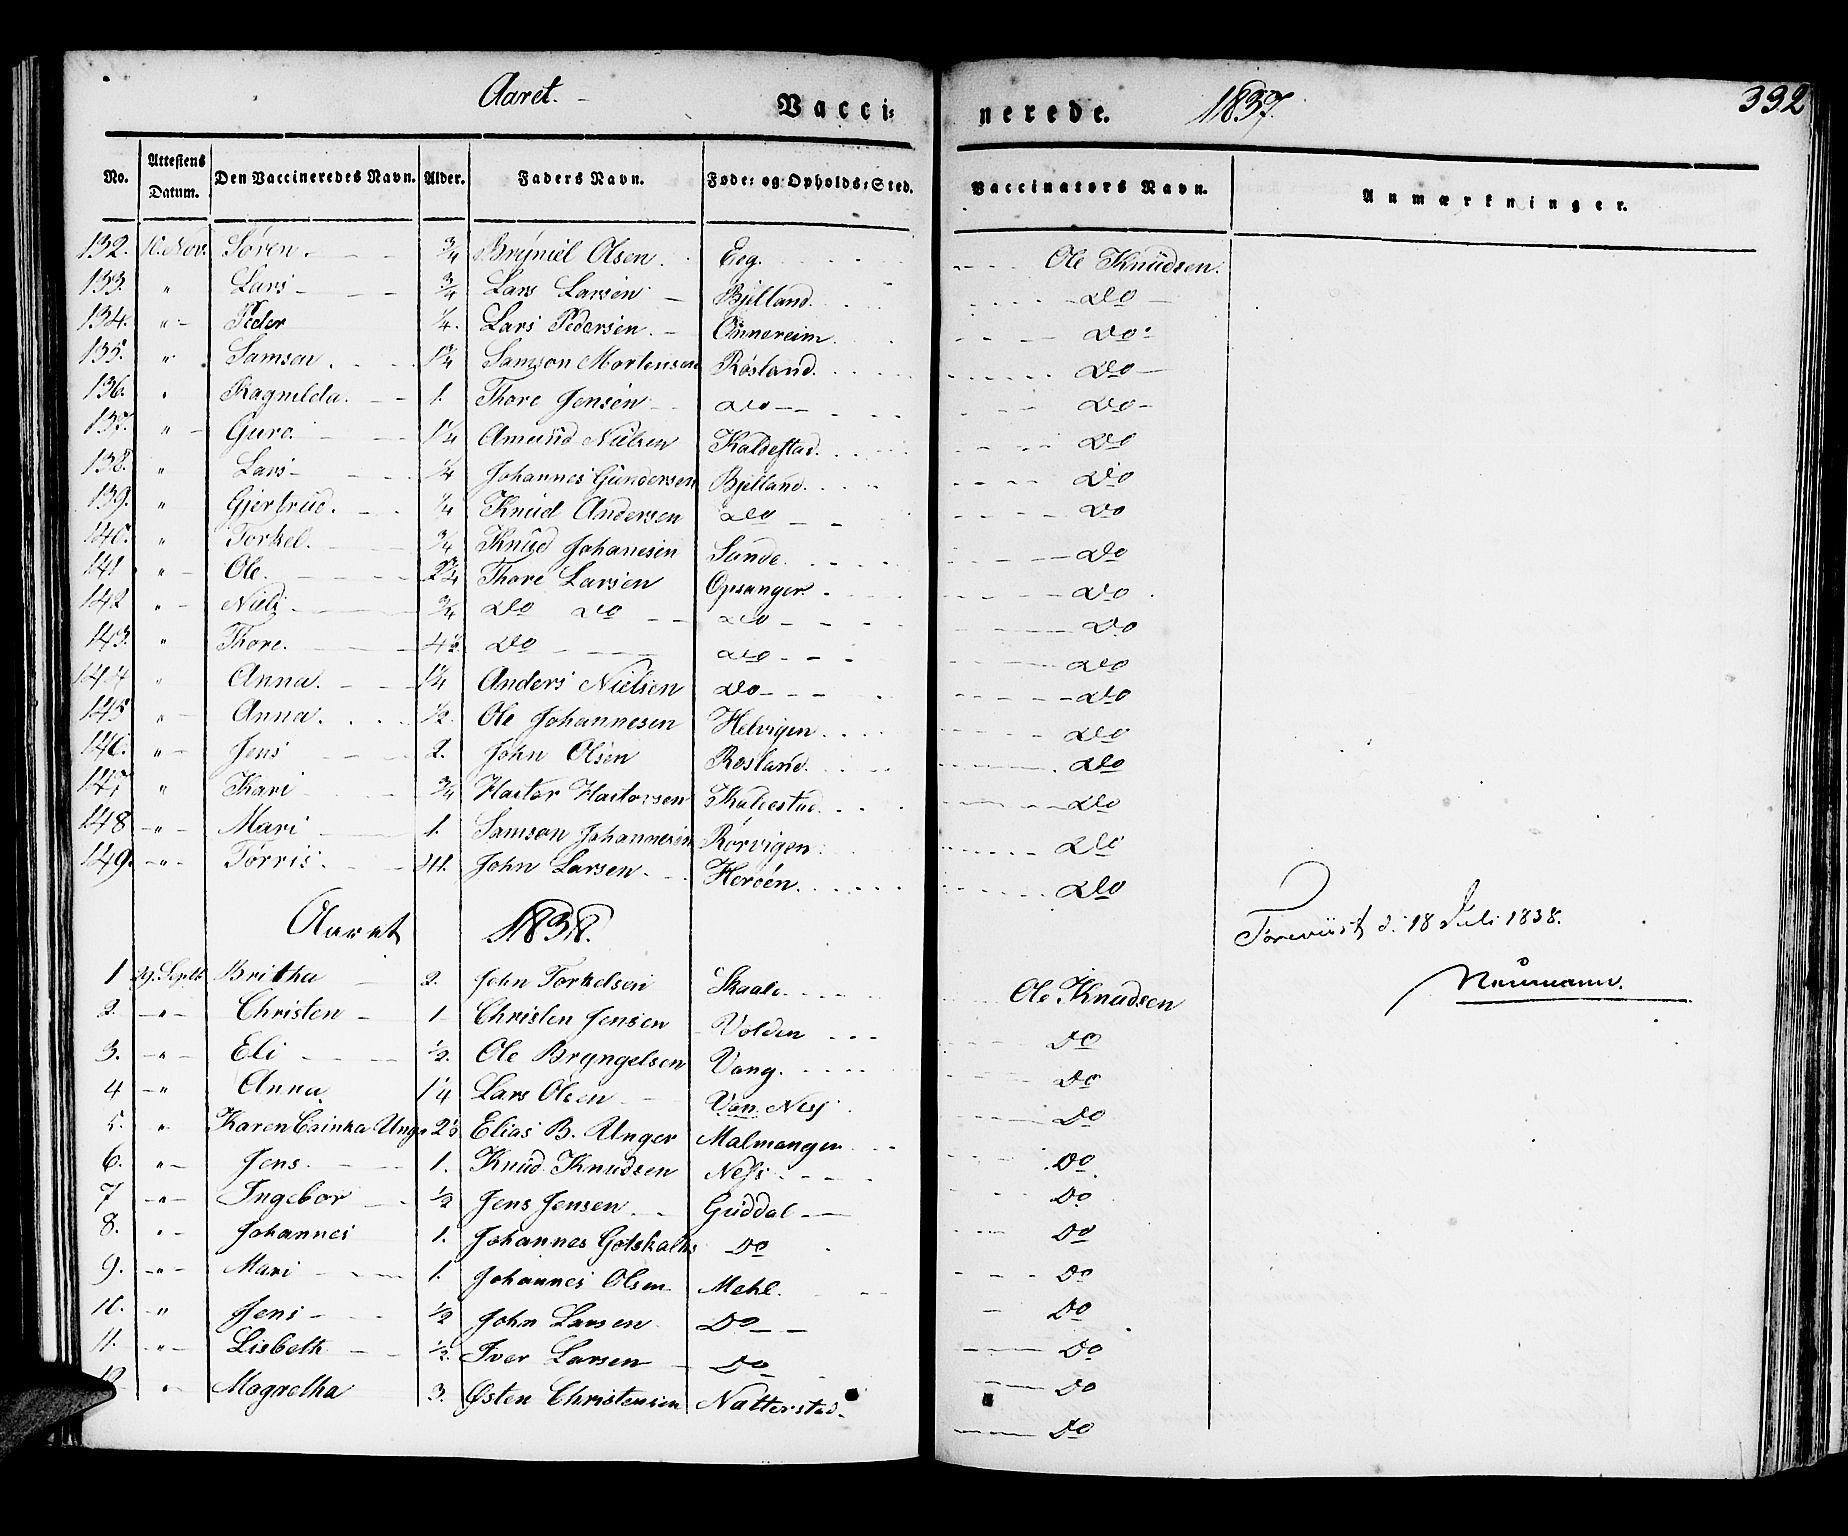 Aaret. Vacci= nerede. 1837. 332
No. Attestens Datum. Den Vaccineredes Navn. Alder. Faders Navn. Føde= og Opholds=Sted. Vaccinators Navn. Anmærkninger.
132. 10. Nov. Søren. 3/4 Brÿniel Olsen. Eeg. Ole Knudsen.
133. " Lars 3/4 Lars Larsen Bjelland. do
134. " Peder 1/4. Lars Pedersen. Onnereim do
135. " Samson. Samson Mortensen Røsland. do
136. " Ragnilda. 1. Thore Jensen do do
137. " Guro. 1 1/4 Amund Nielsen Kaldestad. do
138. " Lars 1/4 Johannes Gundersen Bjelland. do
139. " Gjertrud. 1/4 Knud Andersen do do
140. " Torkel. 3/4 Knud Johanesen Sunde. do
141. " Ole. 2 3/4 Thore Larsen Opsanger. do
142 " Niels 3/4 do do do do
143. " Thore. do do do
144 " Anna. 1 1/4 Anders Nielsen do do
145 " Anna. 1/2. Ole Johannesen Helvigen do
146. " Jens 2. John Olsen Røsland. do
147. " Kari 3/4 Hactor Hactorsen Kaldestad. do
148 " Mari 1. Samson Johannesen Rørvigen do
149. " Tørris John Larsen. Herøen. do
Aaret 1838.
Foreviist d. 18 Juli 1838.
Neumann.
1 29. Septb Britha 2. John Torkelsen Skaale. Ole Knudsen
2. " Christen 1 Christen Jensen Volden do
3. " Eli 1/2. Ole Bryngelsen Vang. do
4 " Anna 1 1/4 Lars Olsen Van Ness do
5. " Karen Elias B. Unger Malmanger do
6. " Jens. 1. Knud Knudsen Ness. do
7 " Ingebor 1/2 Jens Jensen Guddal do
8. " Johannes 1. Johannes Gotskalks do do
9. " Mari 1. Johannes Olsen Mehl. do
10. " Jens 1/2 John Larsen do do
11. " Lisbeth 1/2. Iver Larsen do do
12 " Magretha 3. Østen Christensen Natterstad. do